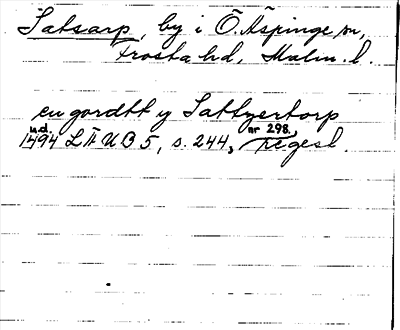 Satsarp, by i Ö. Äspinge sn,
Frosta hd, Malm. l.
en gordtt y Sattzertorp
u.d. nr 298,
1494 LÄUB 5, s. 244, regest.